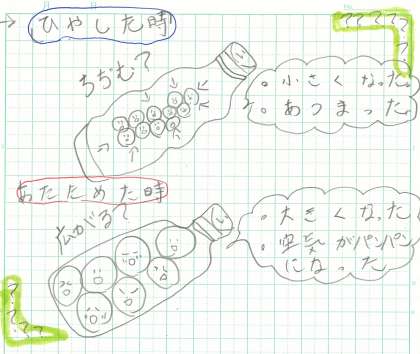 ひやした時
?????
?
ちぢむ?
。小さくなった。
。あつまった。
あたためた時
広がる?
。大きくなった
。空気がパンパン
になった
?
?
???